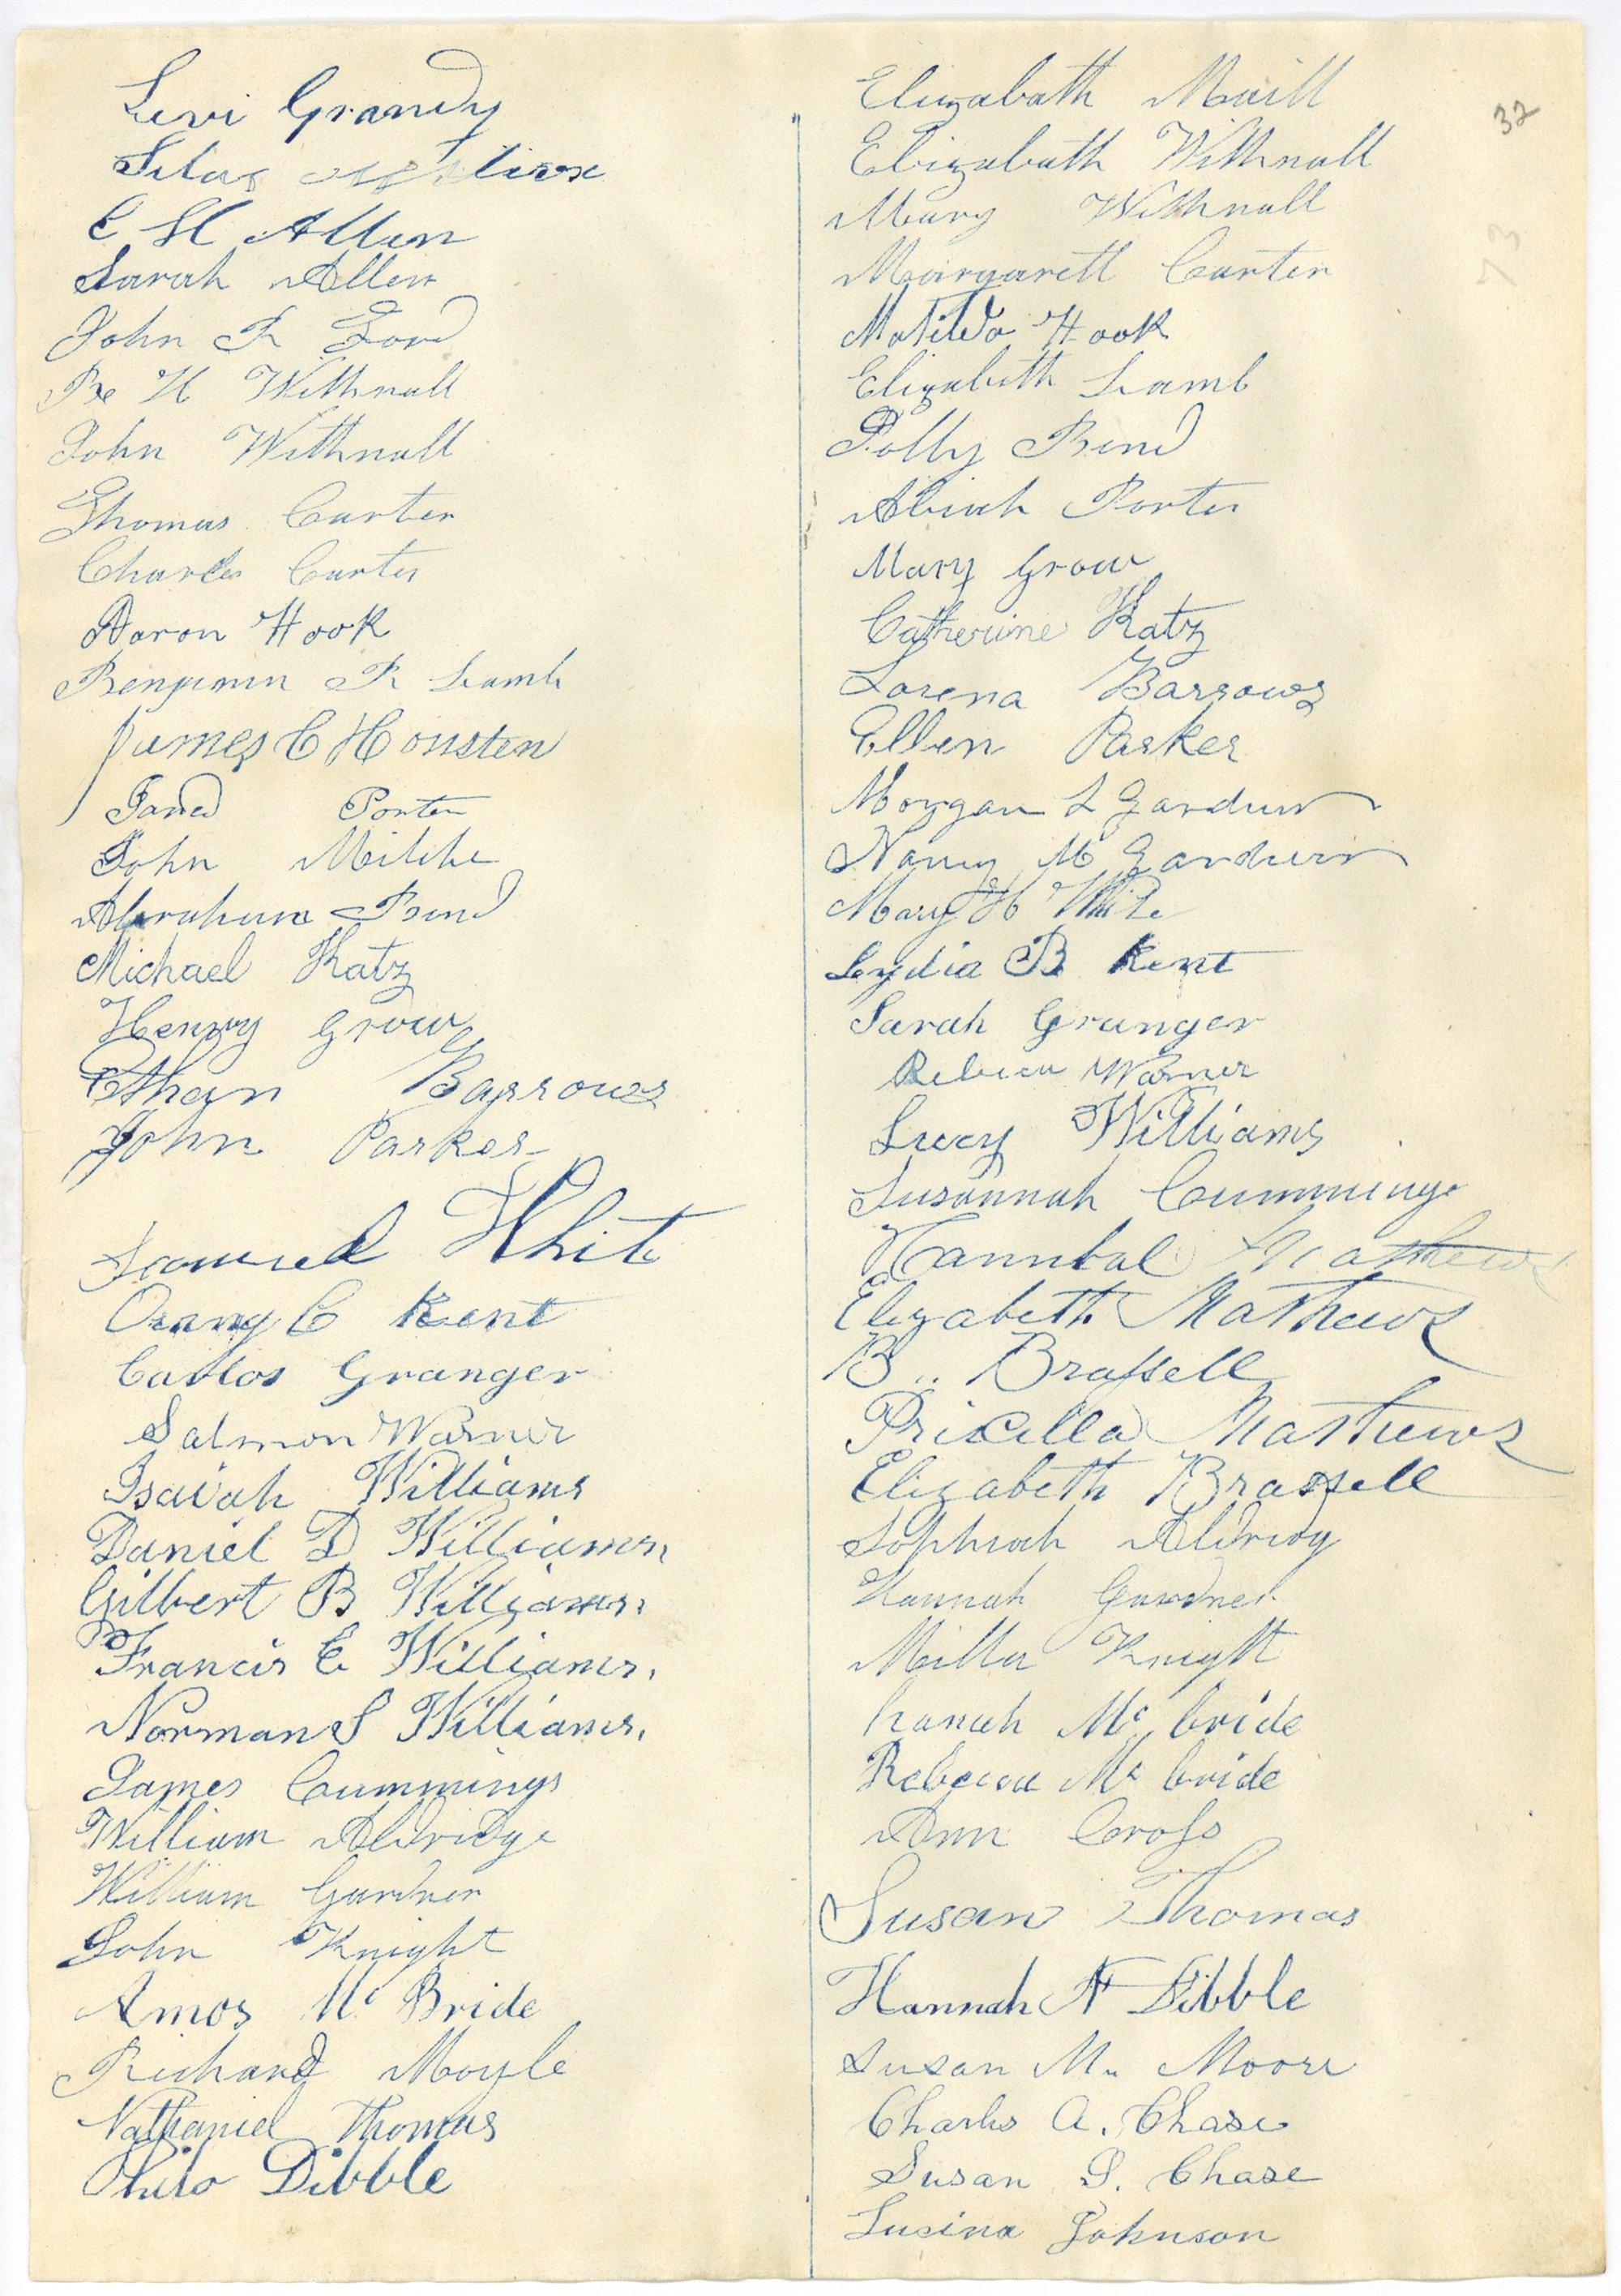 Levi Grandy
Silas
C H Allen
Sarah Allen
John F Ford
H Withnall
John Withnall
Thomas Carter
Charles Carter
Aaron Hook
Benjamin R Lamb
James C Housten
Jared Porter
John
Abraham Bend
Michael Katz
Henry Grow
Ethan Barrows
John Parker
Samuel White
Oramy C Kent
Carlos Granger
Salmon Warner
Isaiah Williams
Daniel D Williams,
Gilbert B Williams,
Francis E Williams,
Norman S Williams,
James Cummings
William Aldridge
William Gardner
John Knight
Amos Mc Bride
Richard Moyle
Nathaniel Thomas
Philo Dibble
32
73
Elizabath
Elizabath Withnall
Mary Withnall
Margarett Carter
Matilda Hook
Elizabeth Lamb
Polly Bend
Abiah Porter
Mary Grow
Catherine Katz
Lorena Barrows
Ellen Parker
Morgan L Gardner
Nancy M Gardner
Mary H White
Lydia B Kent
Sarah Granger
Rebecca Warner
Lucy Williams
Susannah Cummings
Hannibal Mathews
Elizabeth Mathews
B.. Brassell
Pricilla Mathews
Elizabeth Brassell
Sophiah Aldridg
Hannah Gardner
Milla Knight
hanah Mc bride
Rebecca Mc bride
Ann Cross
Susan Thomas
Hannah A Dibble
Susan M. Moore
Charles A. Chase
Susan S. Chase
Lucina Johnson